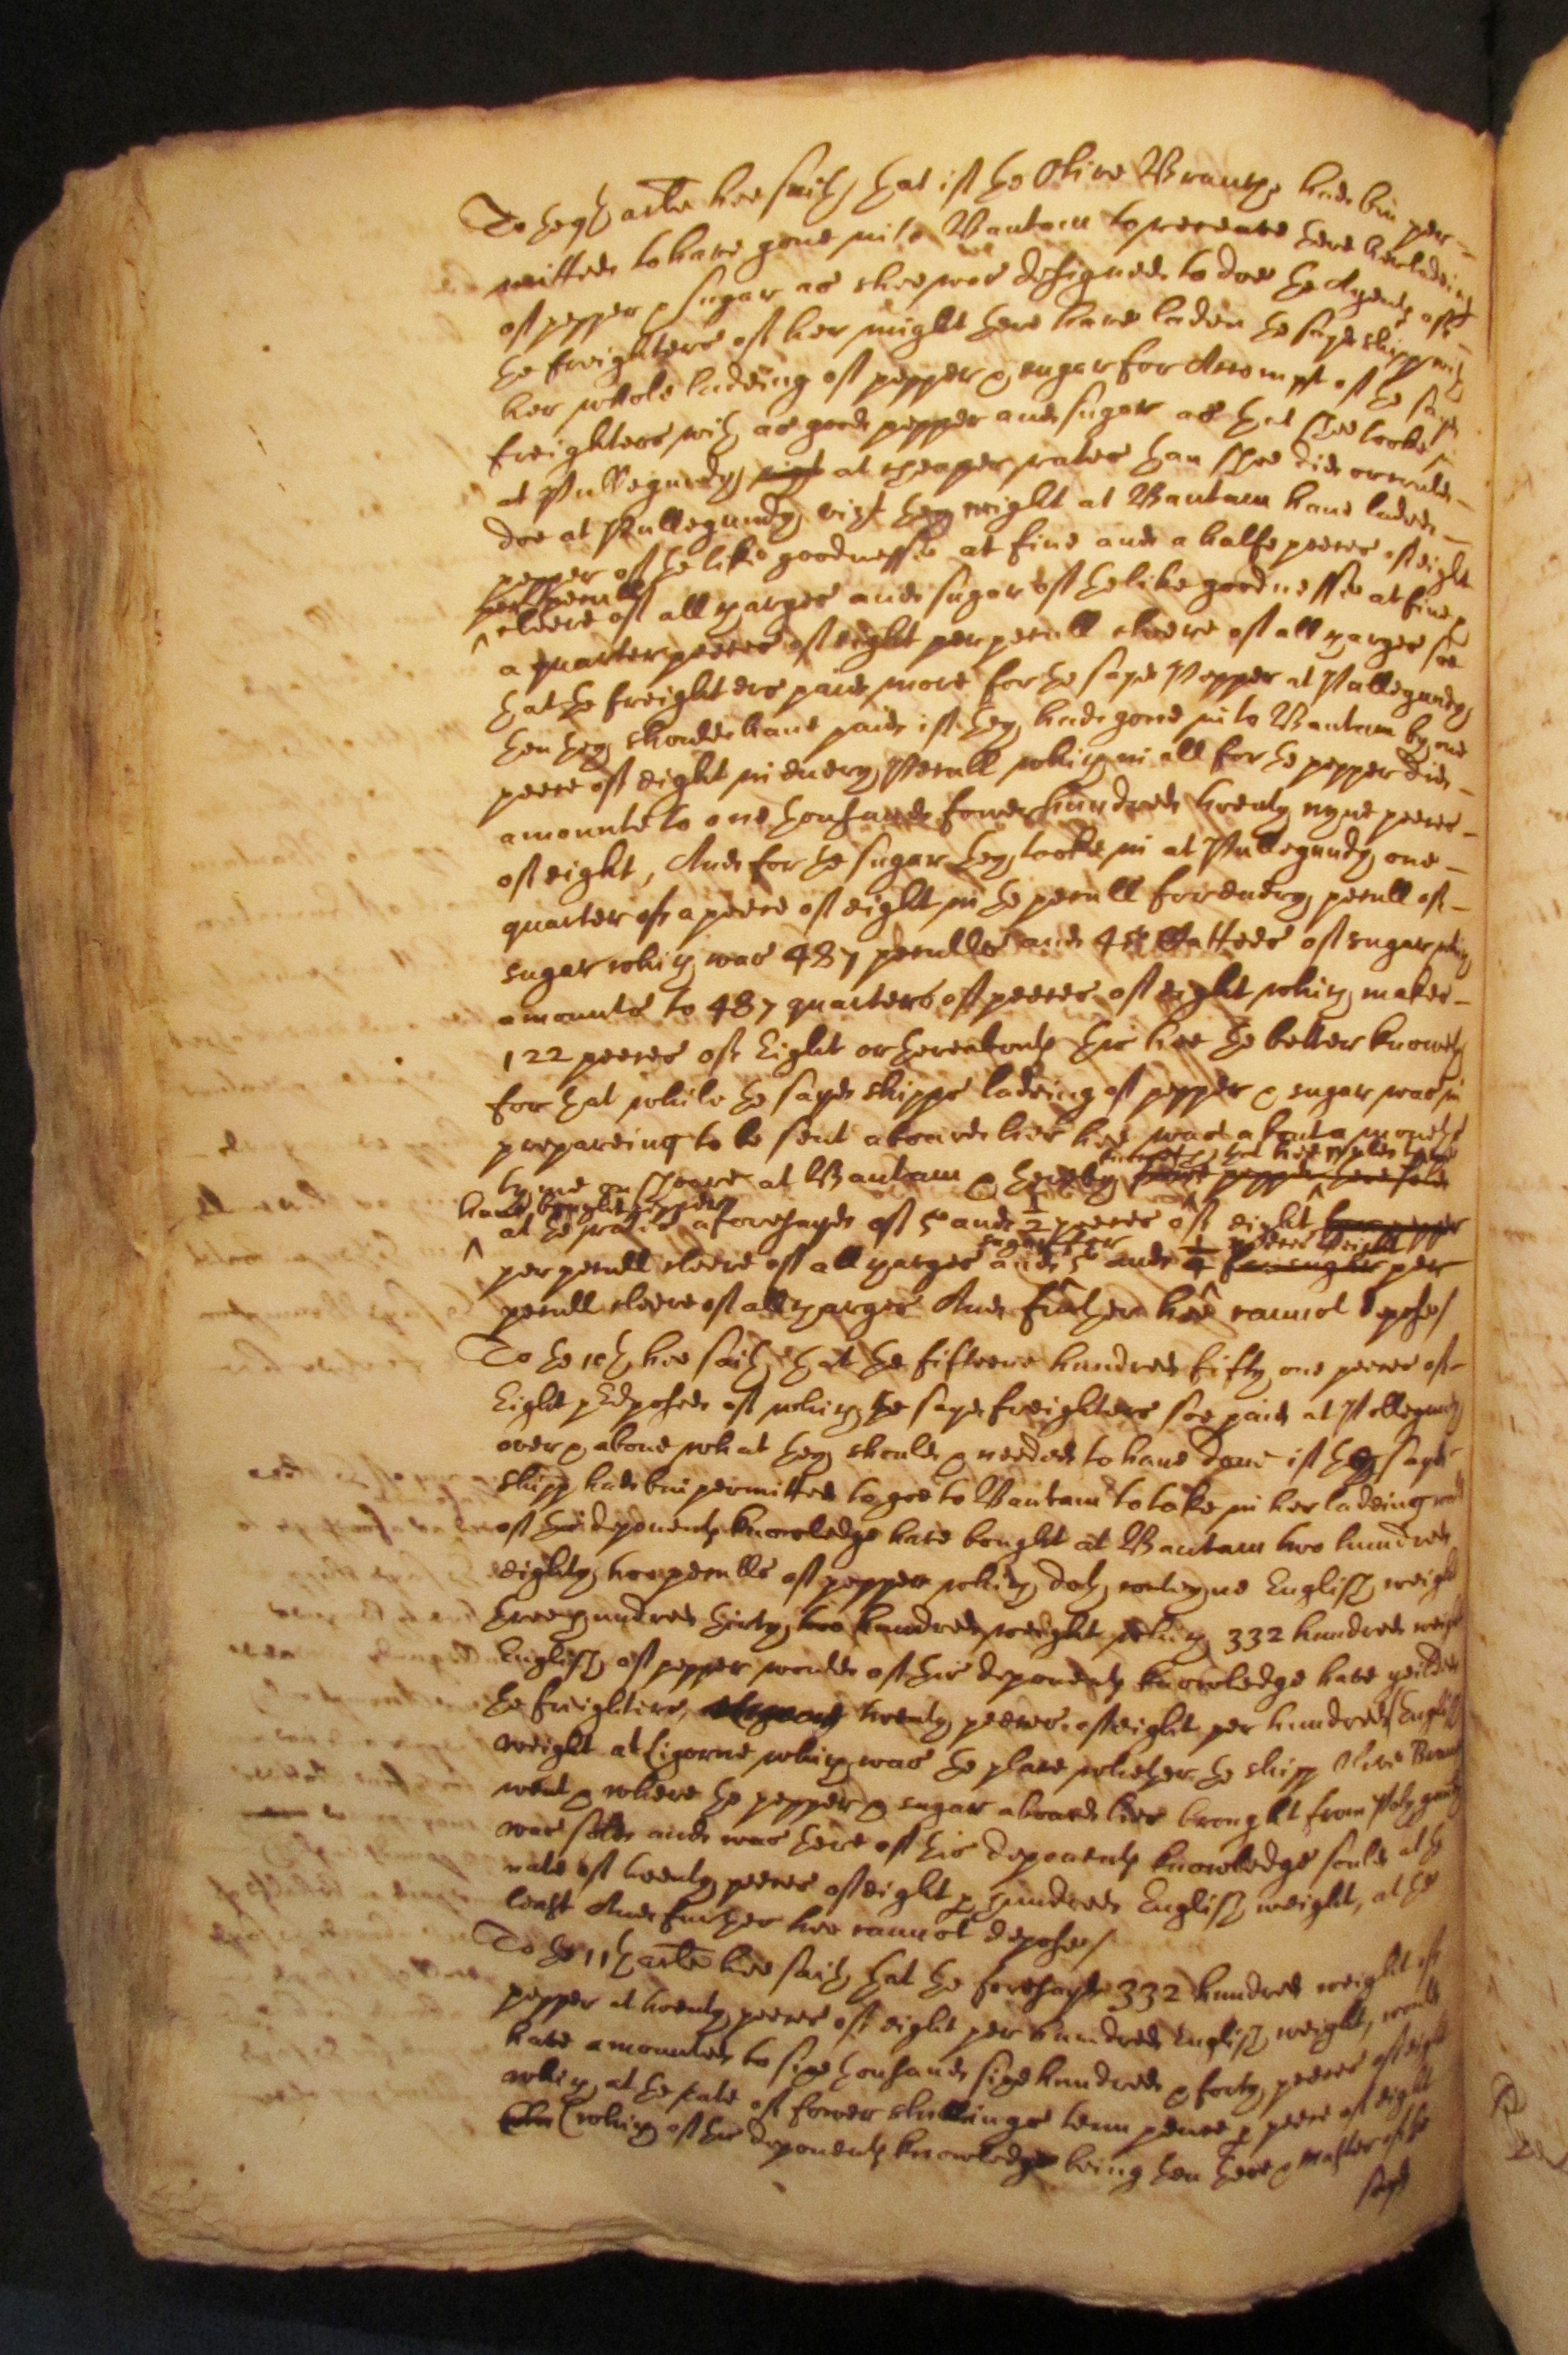 To the 9th arle hee saith that if the Olive Branch had bin per-
mitted to have gone into Bantam to receave there her ladeing
of pepper & sugar as shee was designed to doe the Agents of
the freighters of her might there have laden the sayd shipp with
her whole ladeing of pepper & sugar for Accompt of the sayd
freighters with as good pepper and sugar as that shee tooke in
at Pullegundy at cheaper rates than shee did or could
doe at Pullegundy, vizt they might at Bantam have laden
pepper of the like goodnesse at five and a halfe peeces of eight
per pecull
cleere of all charges and sugar of the like goodnesse at five &
a quarter peeces of eight per pecull cleere of all charges soe
that the freighters paid more for the sayd Pepper at Pullegundy
then they should have paid if they had gone into Bantam by one
peece of eight in every Pecull which in all for the pepper did
amounte to one thousand fower hundred twenty nyne peeces
of eight, And for the sugar they tooke in at Pullegundy one
quarter of a peece of eight in the pecull for every pecull of
sugar which was 487 peculls and Cattees of sugar which
amounts to 487 quarters of peeces of eight which makes
122 peeces of Eight or thereabouts this hee the better knoweth
for that while the sayd shipps ladeing of pepper & sugar was in
prepareing to be sent aboard her hee was about a moneths
tyme on shoare at Bantam & thereby knoweth that hee could then
have bought pepper
at the rate aforesayd of 5 and 1/2 peeces of eight
sugar for peeces of eight
per pecull cleere of all charges and 5 and 1/4 for sugar per
pecull cleere of all charges And further hee cannot depose/
To the 10th hee saith that the fifteene hundred fifty one peeces of
Eight p&dposed of which the sayd freighters soe paid at Pollegundy
over & above what they should & needed to have done if the sayd
shipp had bin permitted to goe to Bantam to take in her ladeing would
of this deponents knowledge have bought at Bantam two hundred
eighty two peculls of pepper which doth contayne English weight
three hundred thirty two hundred weight which 332 hundred weight
English of pepper would of this deponents knowledge have yeilded
the freighters, twenty peeces of eight per hundred English
weight at Ligorne which was the place whether the shipp Olive Branch
went & where the pepper & sugar aboard her brought from Polegundy
was sold and was there of this deponents knowledge sould at the
rate of twenty peeces of eight p hundred English weight, at the
least And further hee cannot depose/
To the 11th arle hee saith that the foresayd 332 hundred weight of
pepper at twenty peeces of eight per hundred English weight, would
have amounted to sixe thousand sixe hundred & forty peeces of eight
which at the rate of fower shillings tenn pence p peece of eight
(which of this deponents knowledge being then there & Master of the
sayd